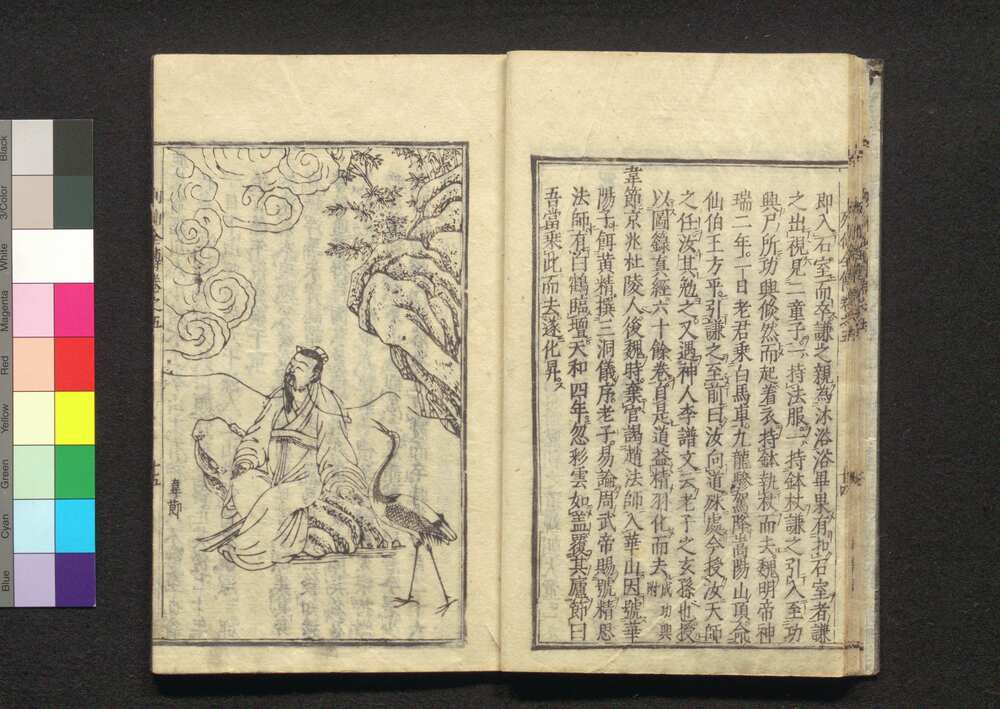 即入石室而卒謙之親為沐浴浴畢果有扣石室者謙
之出視見二童子一持法服一持鉢杖謙之引入至功
興尸所功興倏然而起着衣持鉢執杖而去魏明帝神
瑞二年一日老君乗白馬車九龍驂駕降嵩陽山頂命
仙伯王方平引謙之至前曰汝向道殊處今授汝天師
之任汝其勉之又遇神人李譜文云老子之玄孫也授
以圖錄真經六十餘卷自是道益精羽化而去 附成功興
韋節京兆杜陵人後魏時棄官謁趙法師入華山因號華
陽子餌黄精撰三洞儀序老子易論周武帝賜號精思
法師有白鶴臨壇天和四年忽彩雲如蓋覆其廬節曰
吾當乗此而去遂化昇
韋節
十五
Black
3/Color
White
Magenta
Red
Yellow
Green
Cyan
Blue